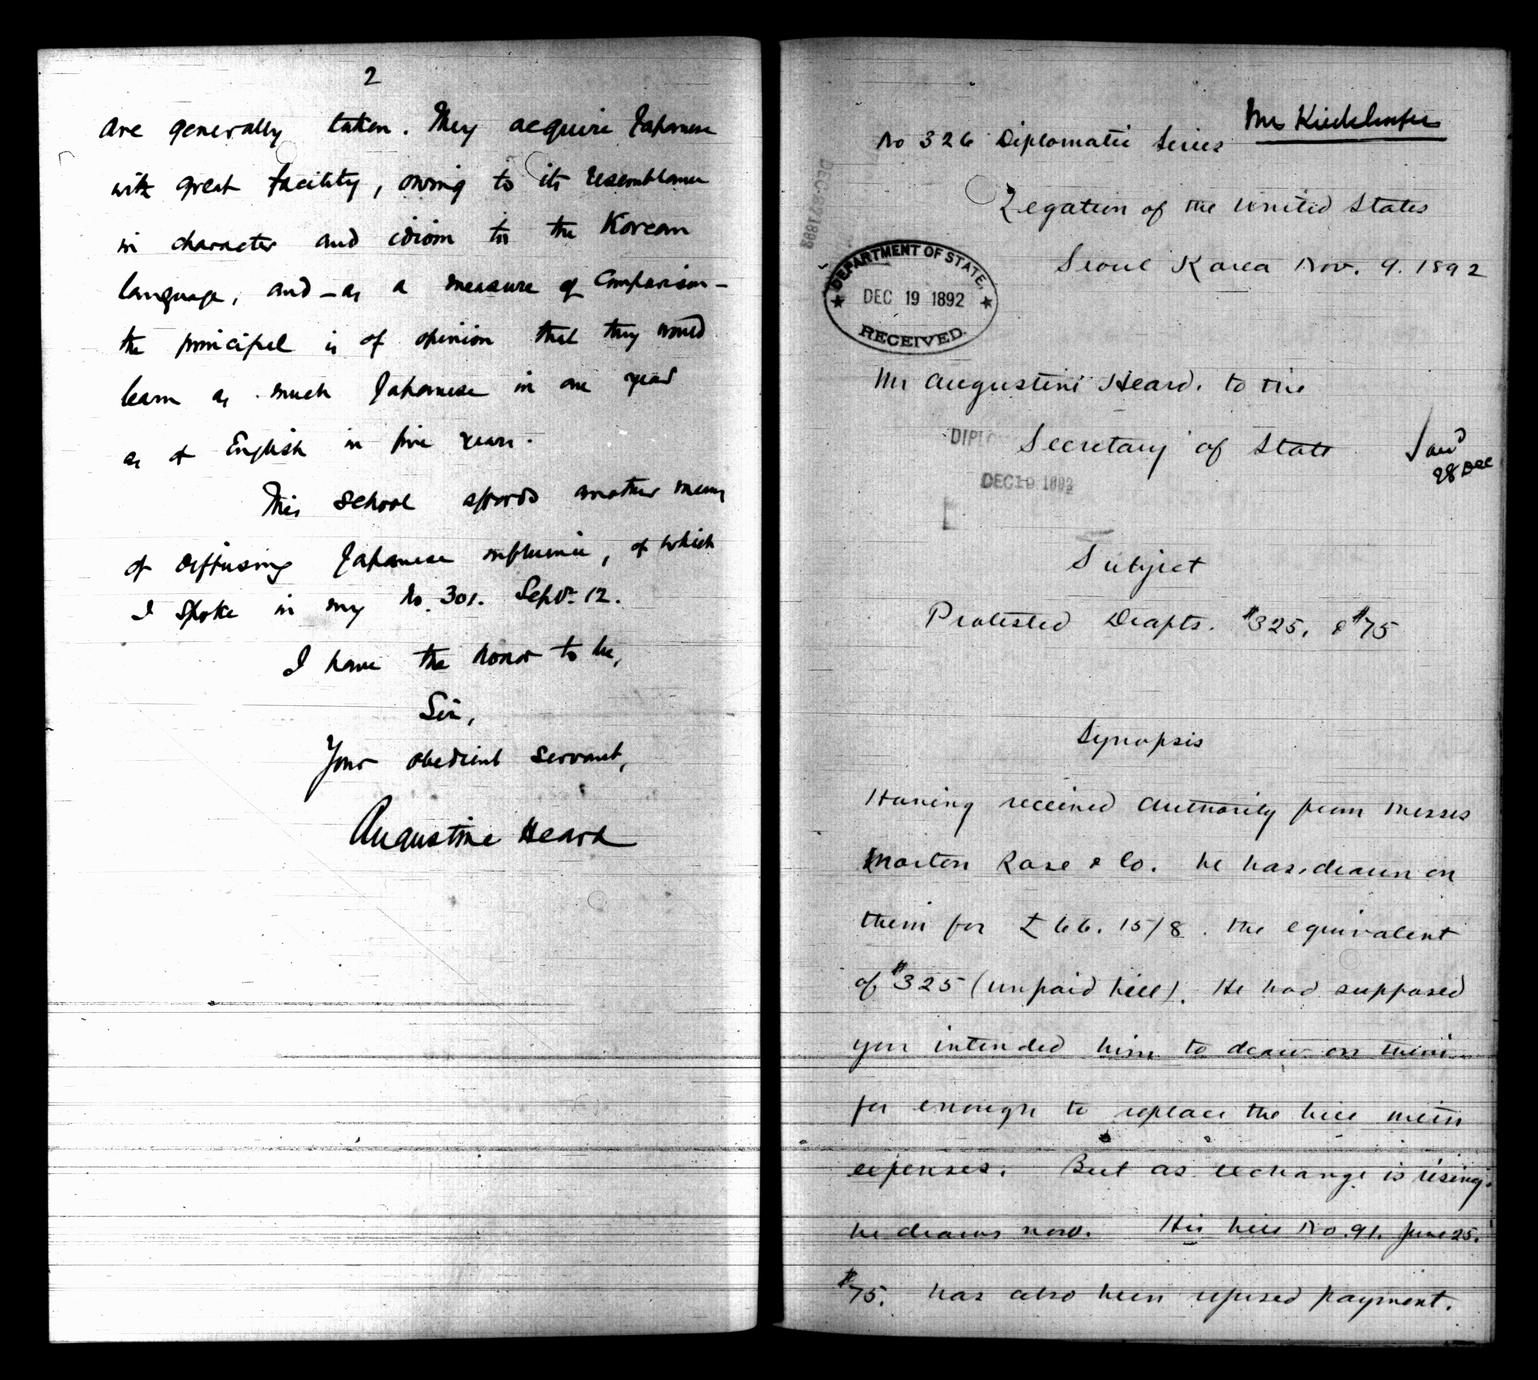 2
are generally taken. They acquire Japanese
with great facility, owing to its resemblance
in character and idiom to the Korean
language, and – as a measure of comparison –
the principal is of opinion that they would
learn as much Japanese in one year
as of English in five years.
This school affords another means
of diffusing Japanese influence, of which
I spoke in my No. 301. Sept. 12.
I have the honor to be,
Sir,
Your obedient servant,
Augustine Heard
No 326 Diplomatic Series
Legation of the United States
Seoul Korea Nov. 9. 1892
DEPARTMENT OF STATE,
DEC 19 1892
RECEIVED.
Mr Augustine Heard. to the
Secretary of State
28 Dec
DEC 19 1892
Subject
Protested Drafts. $325. & $75
Synopsis
Having received authority from Messes
Morton Rose & Co. he has drawn on
them for £66. 15/8. the equivalent
of $325 (unpaid bill). He had supposed
you intended him to draw on them
for enough to replace the bill with
expenses. But as exchange is rising.
he draws now. His bill No. 91. June 25.
$75. has also been refused payment.